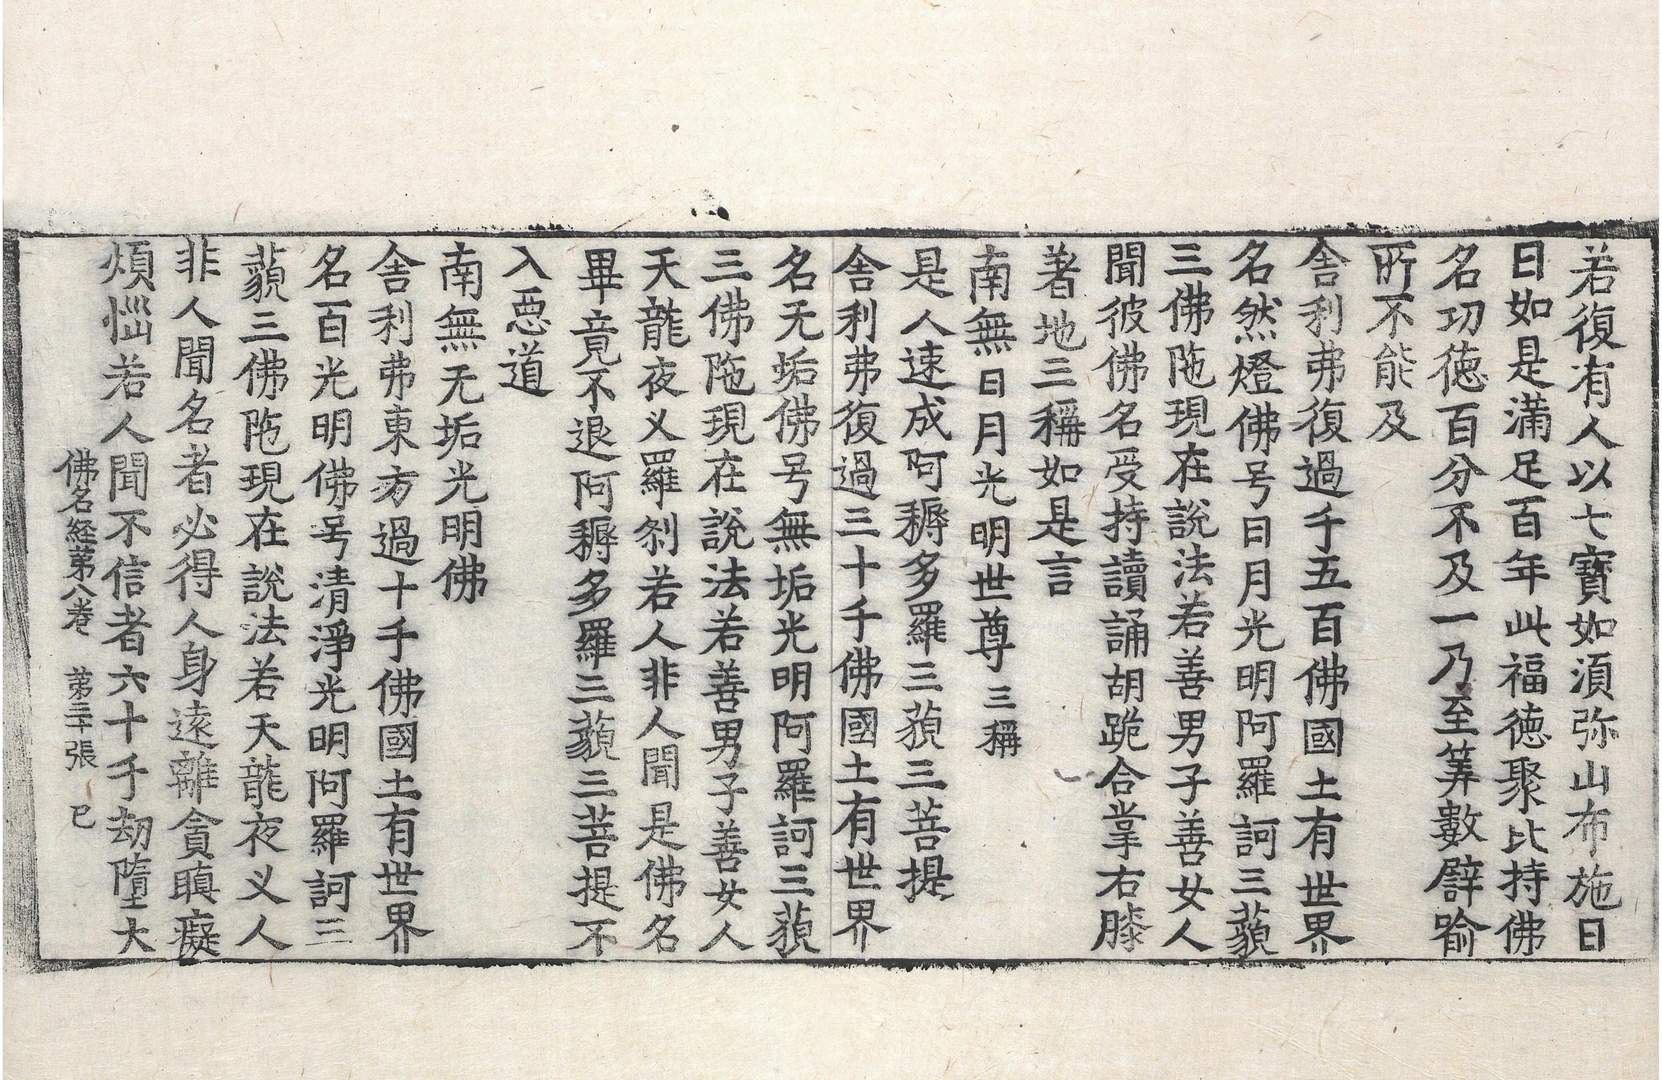 若復有人以七寶如須弥山布施日
日如是滿足百年此福徳聚比持佛
名功徳百分不及一乃至筭數譬喻
所不能及
舎利弗復過千五百佛國土有世界
名然燈佛号日月光明阿羅訶三藐
三佛陁現在說法若善男子善女人
聞彼佛名受持讀誦胡跪合掌右膝
著地三稱如是言
南無日月光明世尊 三稱
是人速成阿耨多羅三藐三菩提
舎利弗復過三十千佛國土有世界
名无垢佛号無垢光明阿羅訶三藐
三佛陁現在說法若善男子善女人
天龍夜叉羅刹若人非人聞是佛名
畢竟不退阿耨多羅三藐三菩提不
入惡道
南無无垢光明佛
舎利弗東方過十千佛國土有世界
名百光明佛号清淨光明阿羅訶三
藐三佛陁現在說法若天龍夜叉人
非人聞名者必得人身遠離貪瞋癡
煩惱若人聞不信者六十千劫墮大
佛名経苐八卷 苐三十張 巳